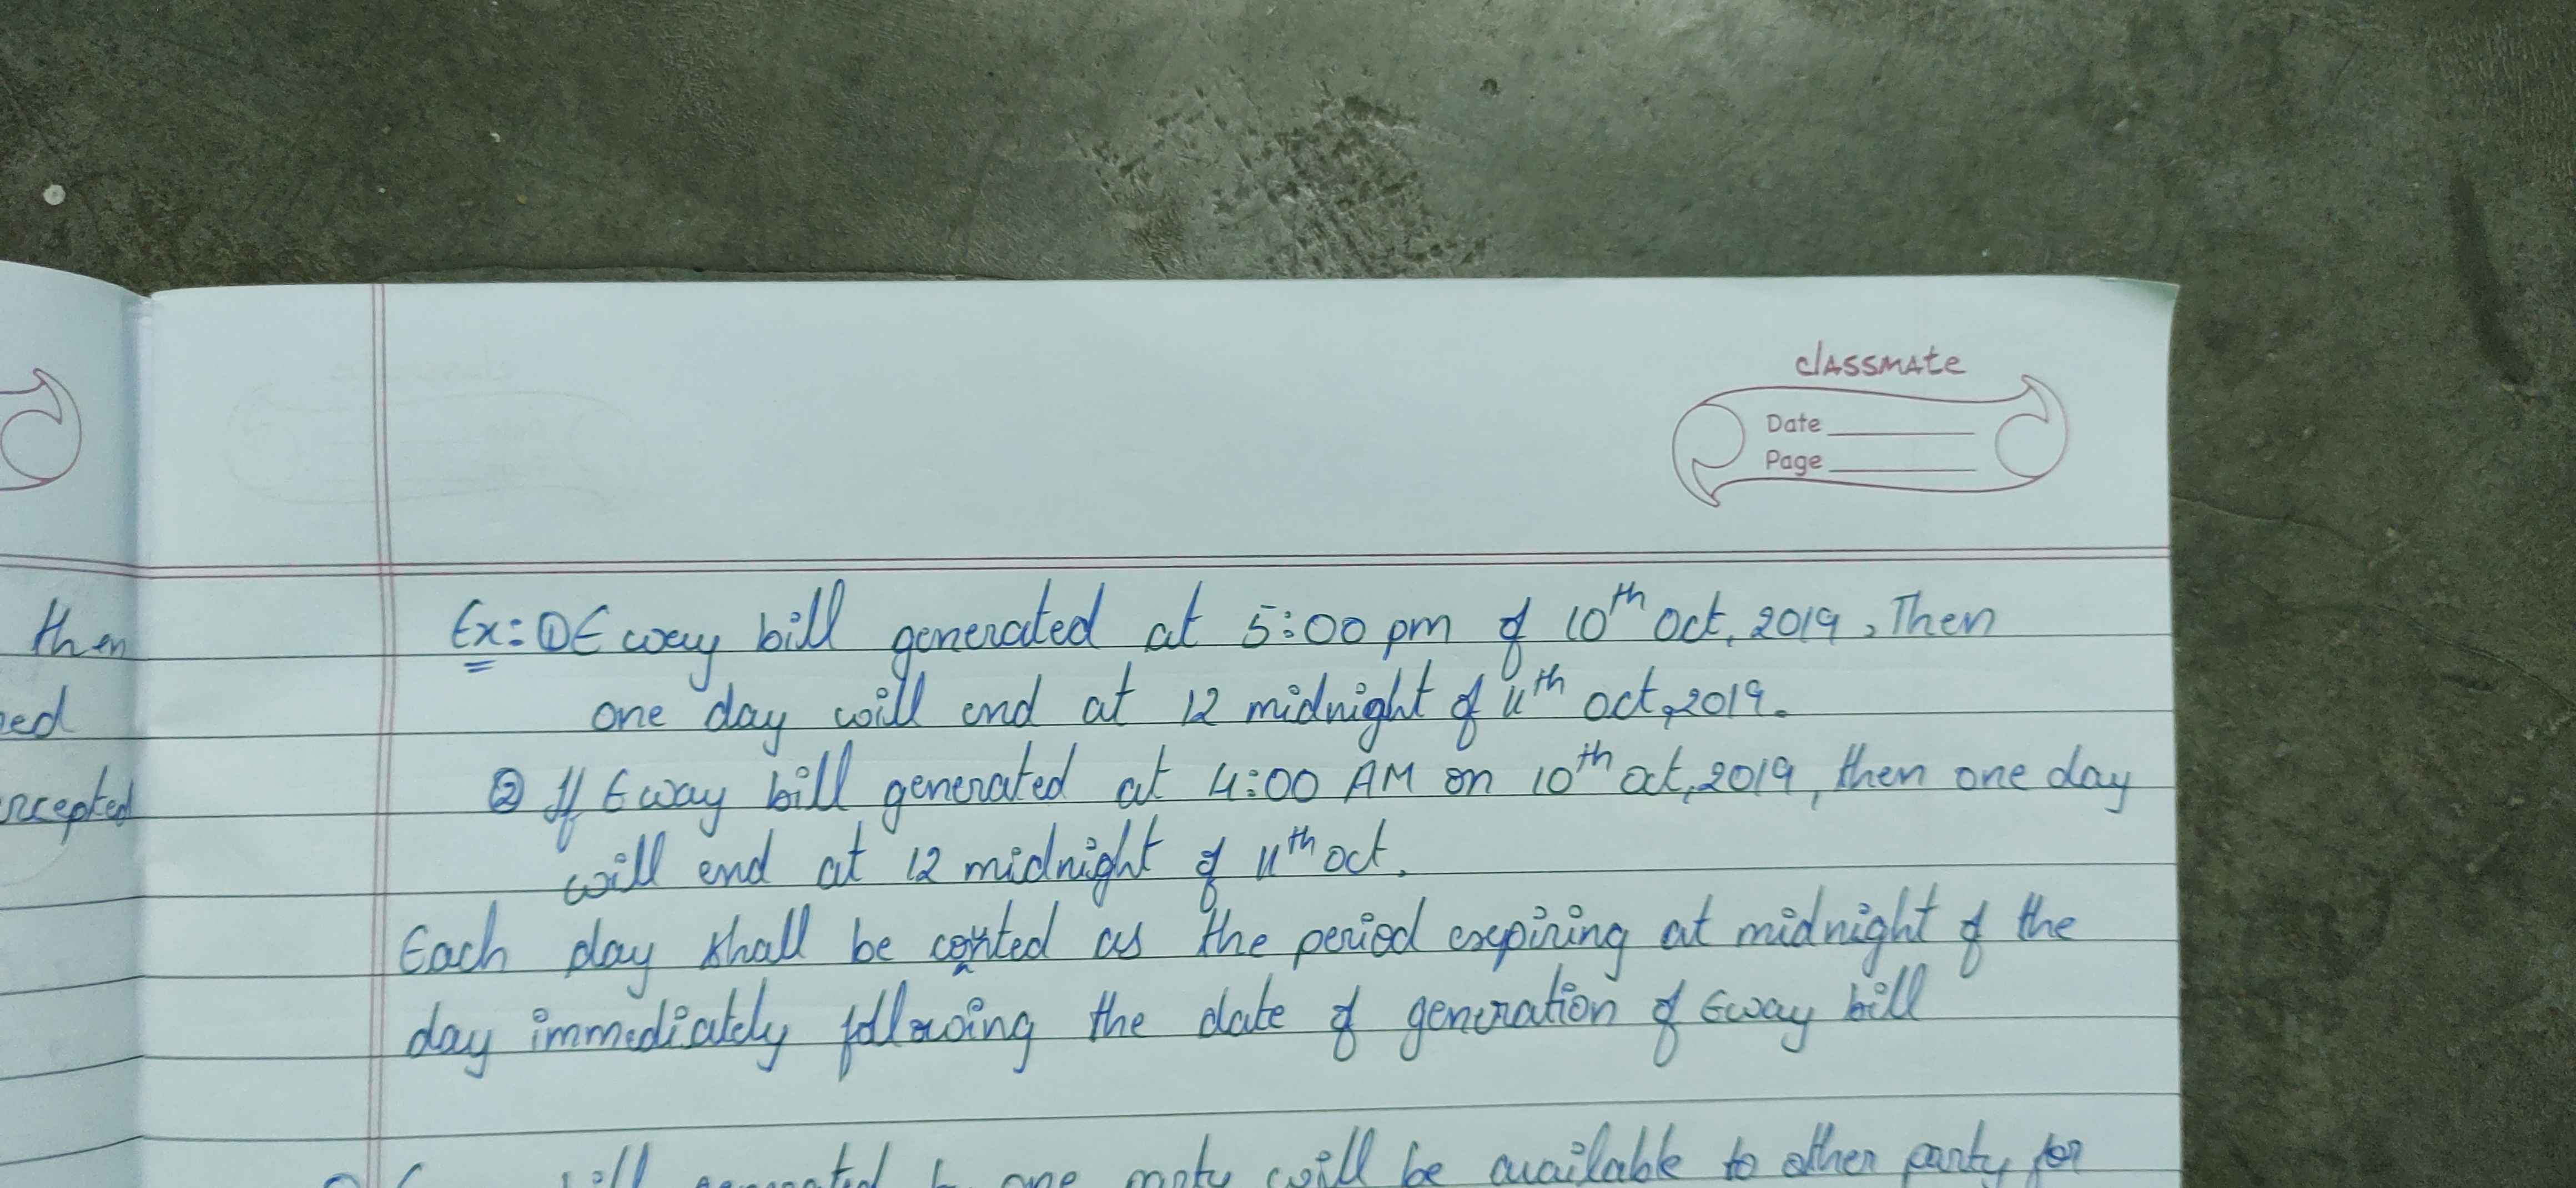 classmate
Date
Page
then
Ex: ① E way bill generated at 5:00 pm of 10th Oct, 2019, Then
one day will end at 12 midnight of 11th oct, 2019.
② If E way bill generated at 4:00 AM on 10th oct, 2019, then one day
will end at 12 midnight of 11th oct.
Each day shall be counted as the period expiring at midnight of the
day immediately following the date of generation of Eway bill
bill generated by one party will be available to other party for